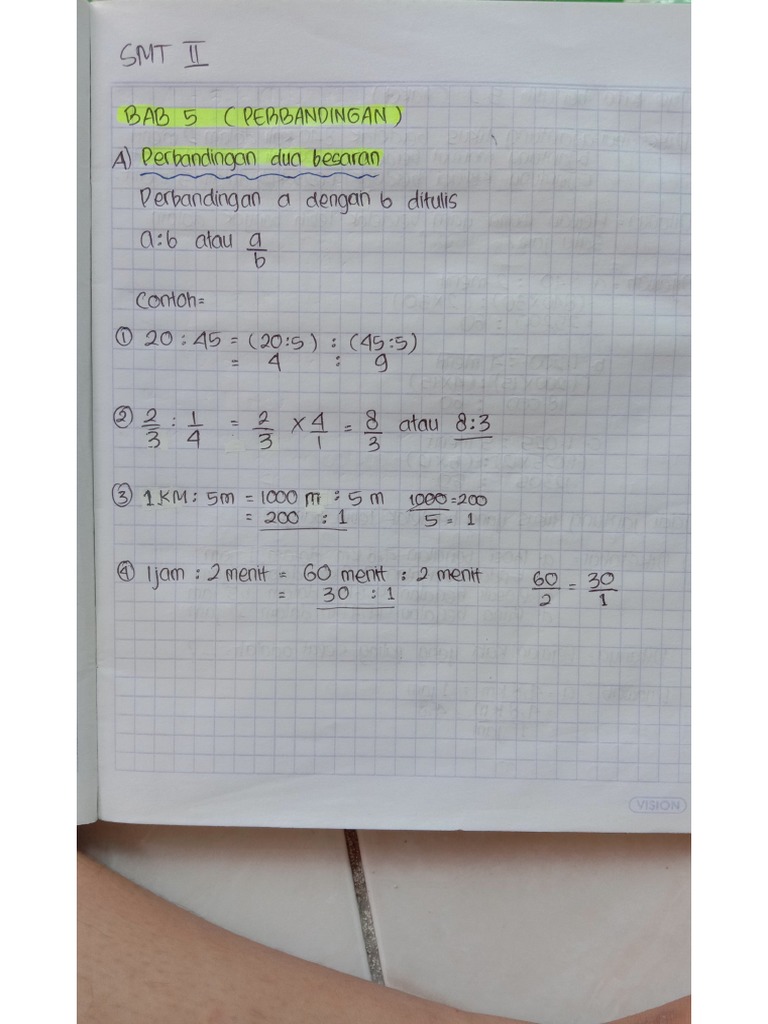 SMT II
BAB 5 (PERBANDINGAN)
A) Perbandingan dua besaran
Perbandingan a dengan b ditulis
a:b atau a/b
Contoh=
① 20 : 45 = (20:5) : (45:5)
= 4 : 9
② 2/3 : 1/4 = 2/3 × 4/1 = 8/3 atau 8:3
③ 1 KM : 5m = 1000 m : 5 m 1000 = 200
= 200 : 1 5 = 1
④ 1jam : 2 menit = 60 menit : 2 menit 60/2 = 30/1
= 30 : 1
VISION